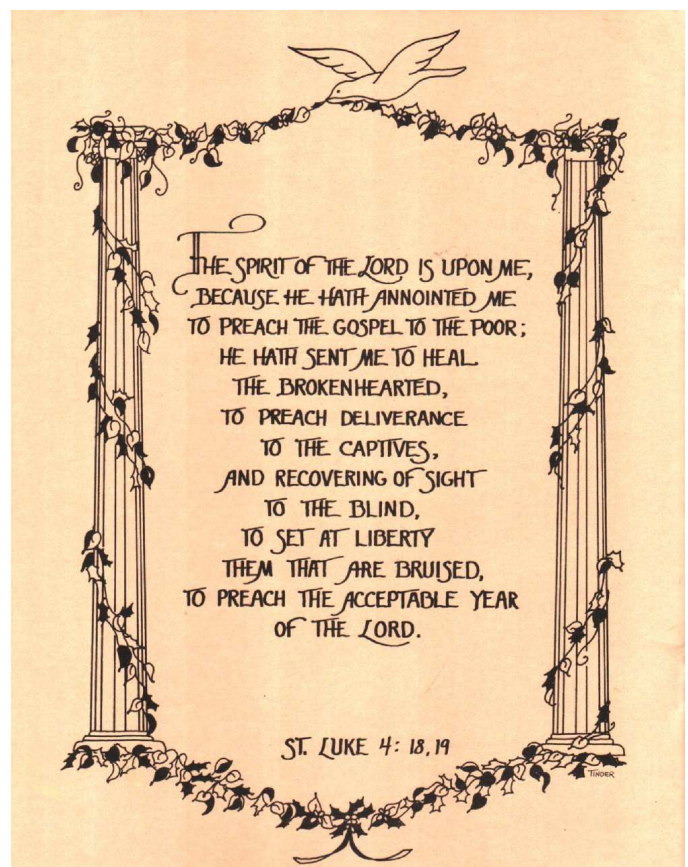 THE SPIRIT OF THE LORD IS UPON ME,
BECAUSE HE HATH ANNOINTED ME
TO PREACH THE GOSPEL TO THE POOR;
HE HATH SENT ME TO HEAL
THE BROKENHEARTED,
TO PREACH DELIVERANCE
TO THE CAPTIVES,
AND RECOVERING OF SIGHT
TO THE BLIND,
TO SET AT LIBERTY
THEM THAT ARE BRUISED,
TO PREACH THE ACCEPTABLE YEAR
OF THE LORD.
ST. LUKE 4: 18,19
TINDER